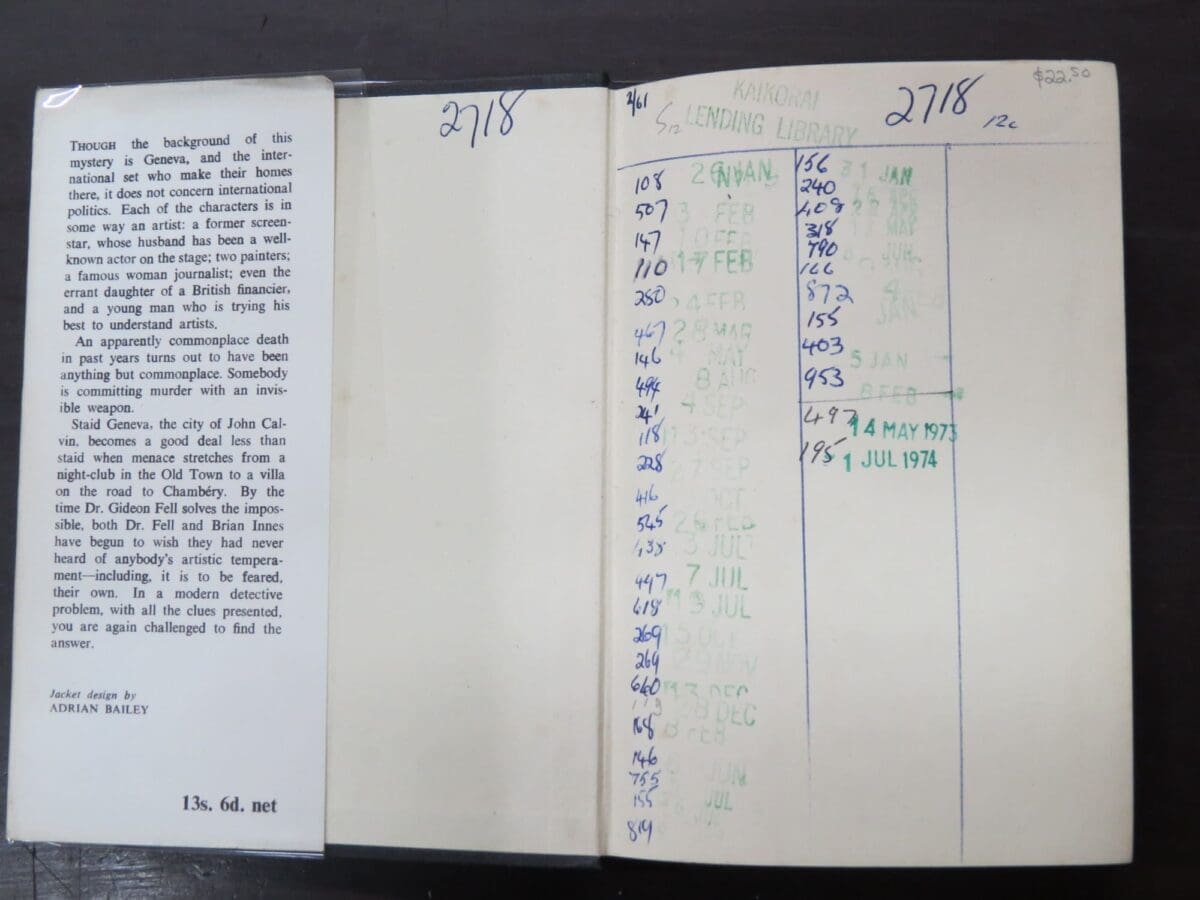 THOUGH the background of this
mystery is Geneva, and the inter-
national set who make their homes
there, it does not concern international
politics. Each of the characters is in
some way an artist: a former screen-
star, whose husband has been a well-
known actor on the stage; two painters;
a famous woman journalist; even the
errant daughter of a British financier,
and a young man who is trying his
best to understand artists.
An apparently commonplace death
in past years turns out to have been
anything but commonplace. Somebody
is committing murder with an invis-
ible weapon.
Staid Geneva, the city of John Cal-
vin, becomes a good deal less than
staid when menace stretches from a
night-club in the Old Town to a villa
on the road to Chambéry. By the
time Dr. Gideon Fell solves the impos-
sible, both Dr. Fell and Brian Innes
have begun to wish they had never
heard of anybody's artistic tempera-
ment—including, it is to be feared,
their own. In a modern detective
problem, with all the clues presented,
you are again challenged to find the
answer.
Jacket design by
ADRIAN BAILEY
13s. 6d. net
2718
$22.50
2/61
KAIKORAI
LENDING LIBRARY
2718
12c
108 JAN
507 3 FEB
147
110 17 FEB
280 FEB
467 28 MAR
146 MAY
494 8 AUG
241 4 SEP
118 SEP
228 SEP
416 OCT
545 FEB
3 JUL
497 7 JUL
618 JUL
269 OCT
269 NOV
660 DEC
DEC
168 FEB
146
755 JUN
155 JUL
819
156 31 JAN
240
408
318 MAY
790 JUN
166
872 4
155 JAN
403 5 JAN
953 8 FEB
497 14 MAY 1973
195 1 JUL 1974